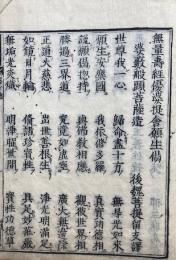 無量壽經優婆提舍願生偈
婆藪般頭菩薩造
後魏菩提留支譯
世尊我一心 歸命盡十方 無㝵光如來
願生安樂國 我依修多羅 真實功德相
說願偈總持 與佛教相應 觀彼世界相
勝過三界道 究竟如虛空 廣大無邊際
正道大慈悲 出世善根生 淨光明滿足
如鏡日月輪 備諸珍寶性 具足妙莊嚴
無垢光炎熾 明淨曜世間 寶性功德草